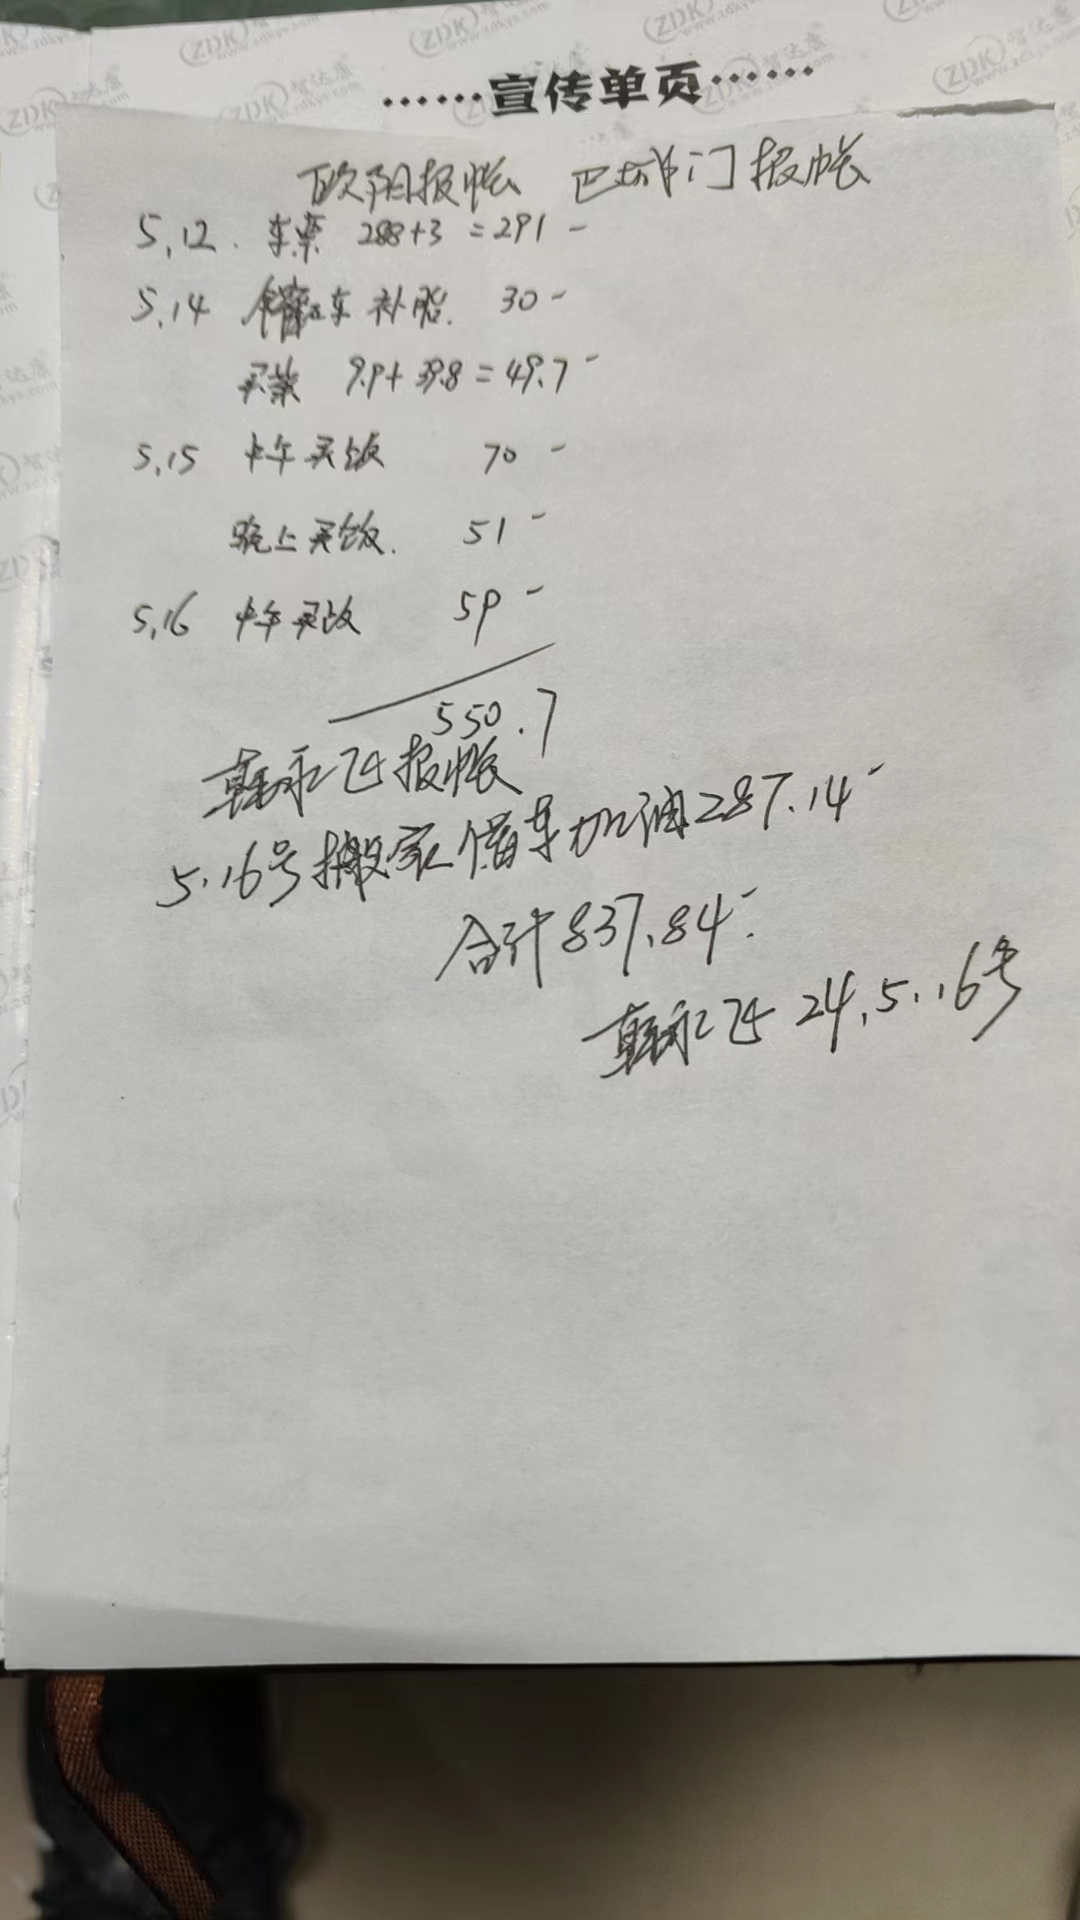 ……宣传单页……
欧阳报帐 巴城部门报帐
5.12. 车票 288+3 =291 -
5.14 借车补胎. 30 -
买菜 9.9+39.8=49.7 -
5.15 中午买饭 70 -
晚上买饭. 51 -
5.16 中午买饭 59 -
550.7
韩永飞报帐
5.16号搬家借车加油287.14 -
合计837.84 -
韩永飞 24.5.16号